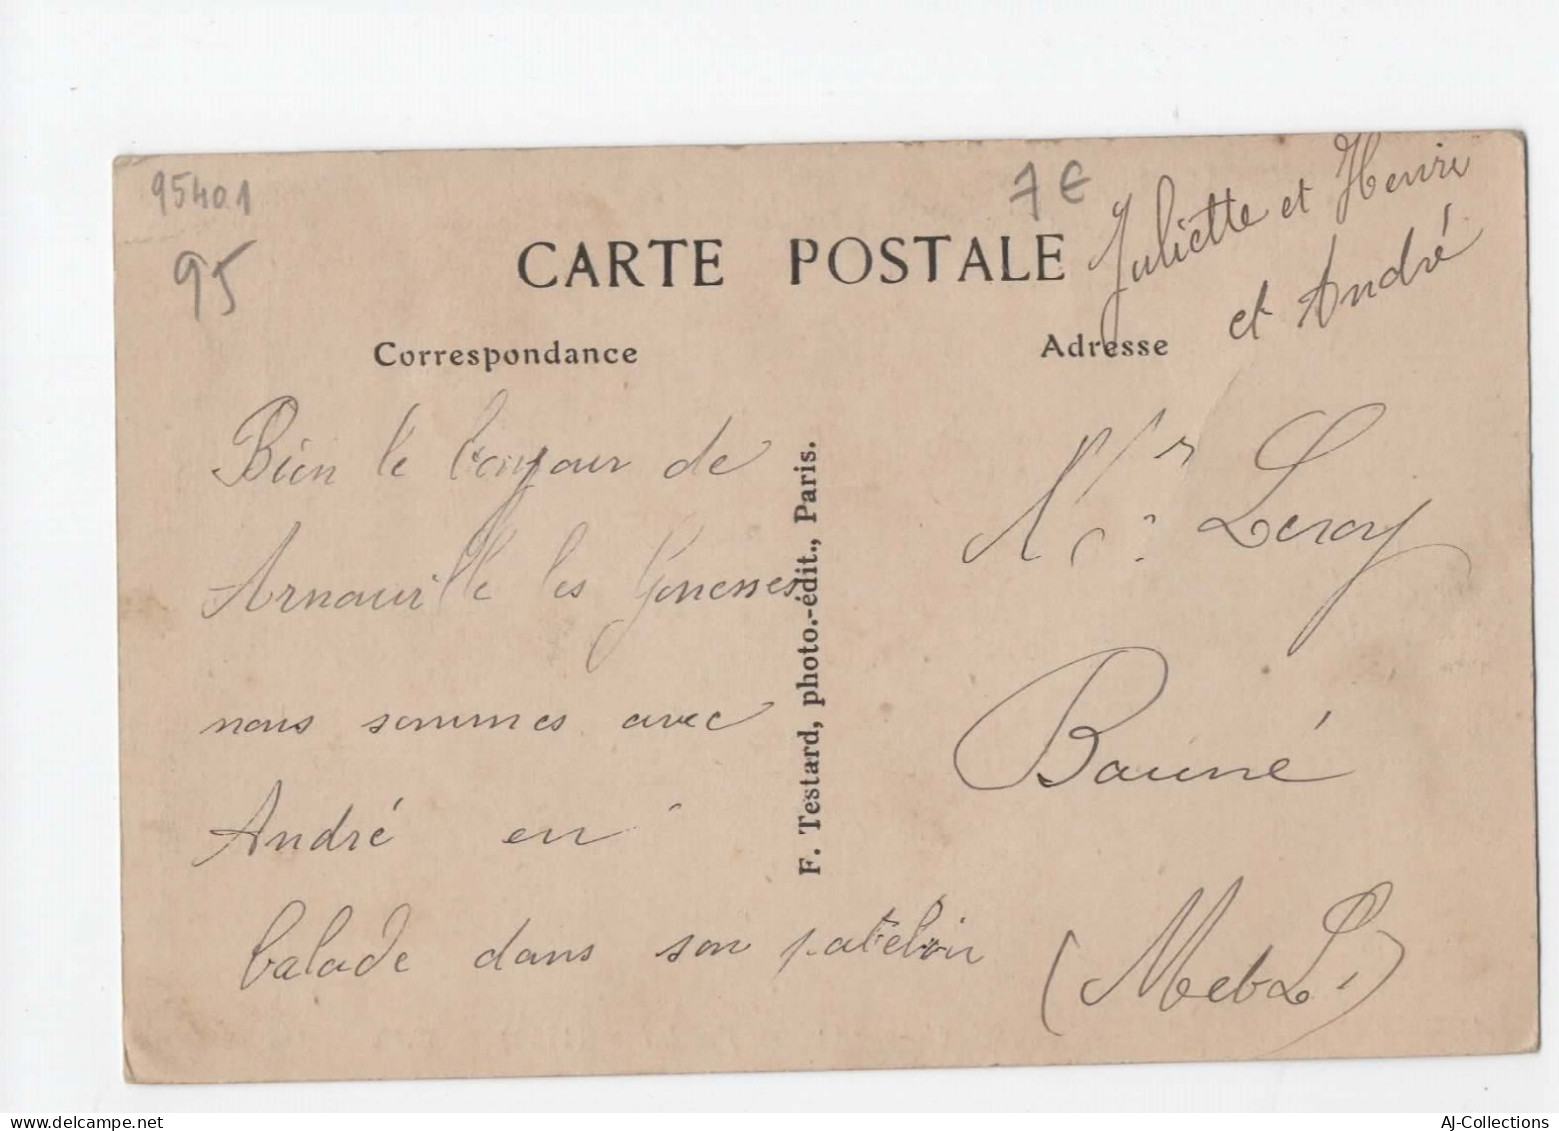 95401
7 €
95
CARTE POSTALE
Juliette et Henri
et André
Correspondance
Adresse
Bien le bonjour de
Arnouville les Gonesses
nous sommes avec
André en
balade dans son patelin
F. Testard, photo.-édit., Paris.
Leroy
Bauné
(M et L.)
AJ-Collections